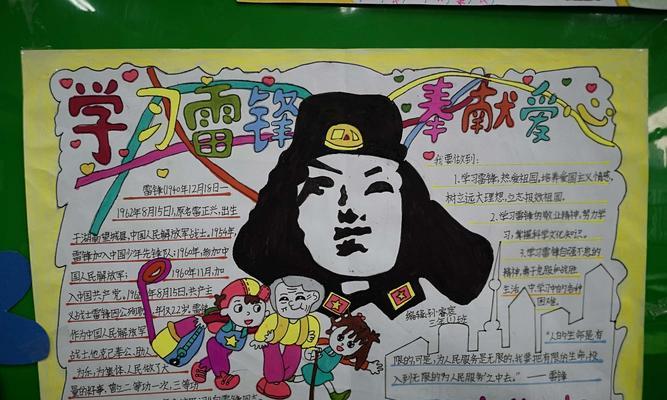 学习雷锋 奉献爱
雷锋(1940年12月18日—
1962年8月15日),原名雷正兴,出生
于湖南望城县,中国人民解放军战士。1954年
雷锋加入中国少年先锋队;1960年,参加中
国人民解放军; 1960年11月,加
入中国共产党。1962年8月15日,共产主
义战士雷锋因公殉职 年仅22岁,雷锋
作为中国人民解放军
战士他克己奉公,助人
为乐,为集体、人民做了大
量的好事,曾立二等功一次,三等功
我要做到:
1.学习雷锋,热爱祖国,培养爱国主义情感,
树立远大理想,立志报效祖国。
2.学习雷锋的敬业精神,努力学
习,掌握科学文化知识。
3.学习雷锋自强不息的
精神,勇于克服和战胜
生活、学习中的各种
困难。
编辑:孙睿宸
三年11班
“人的生命是有
限的,可是,为人民服务是无限的,我要把有限的生命,投
入到无限的“为人民服务”之中去。”
——雷锋